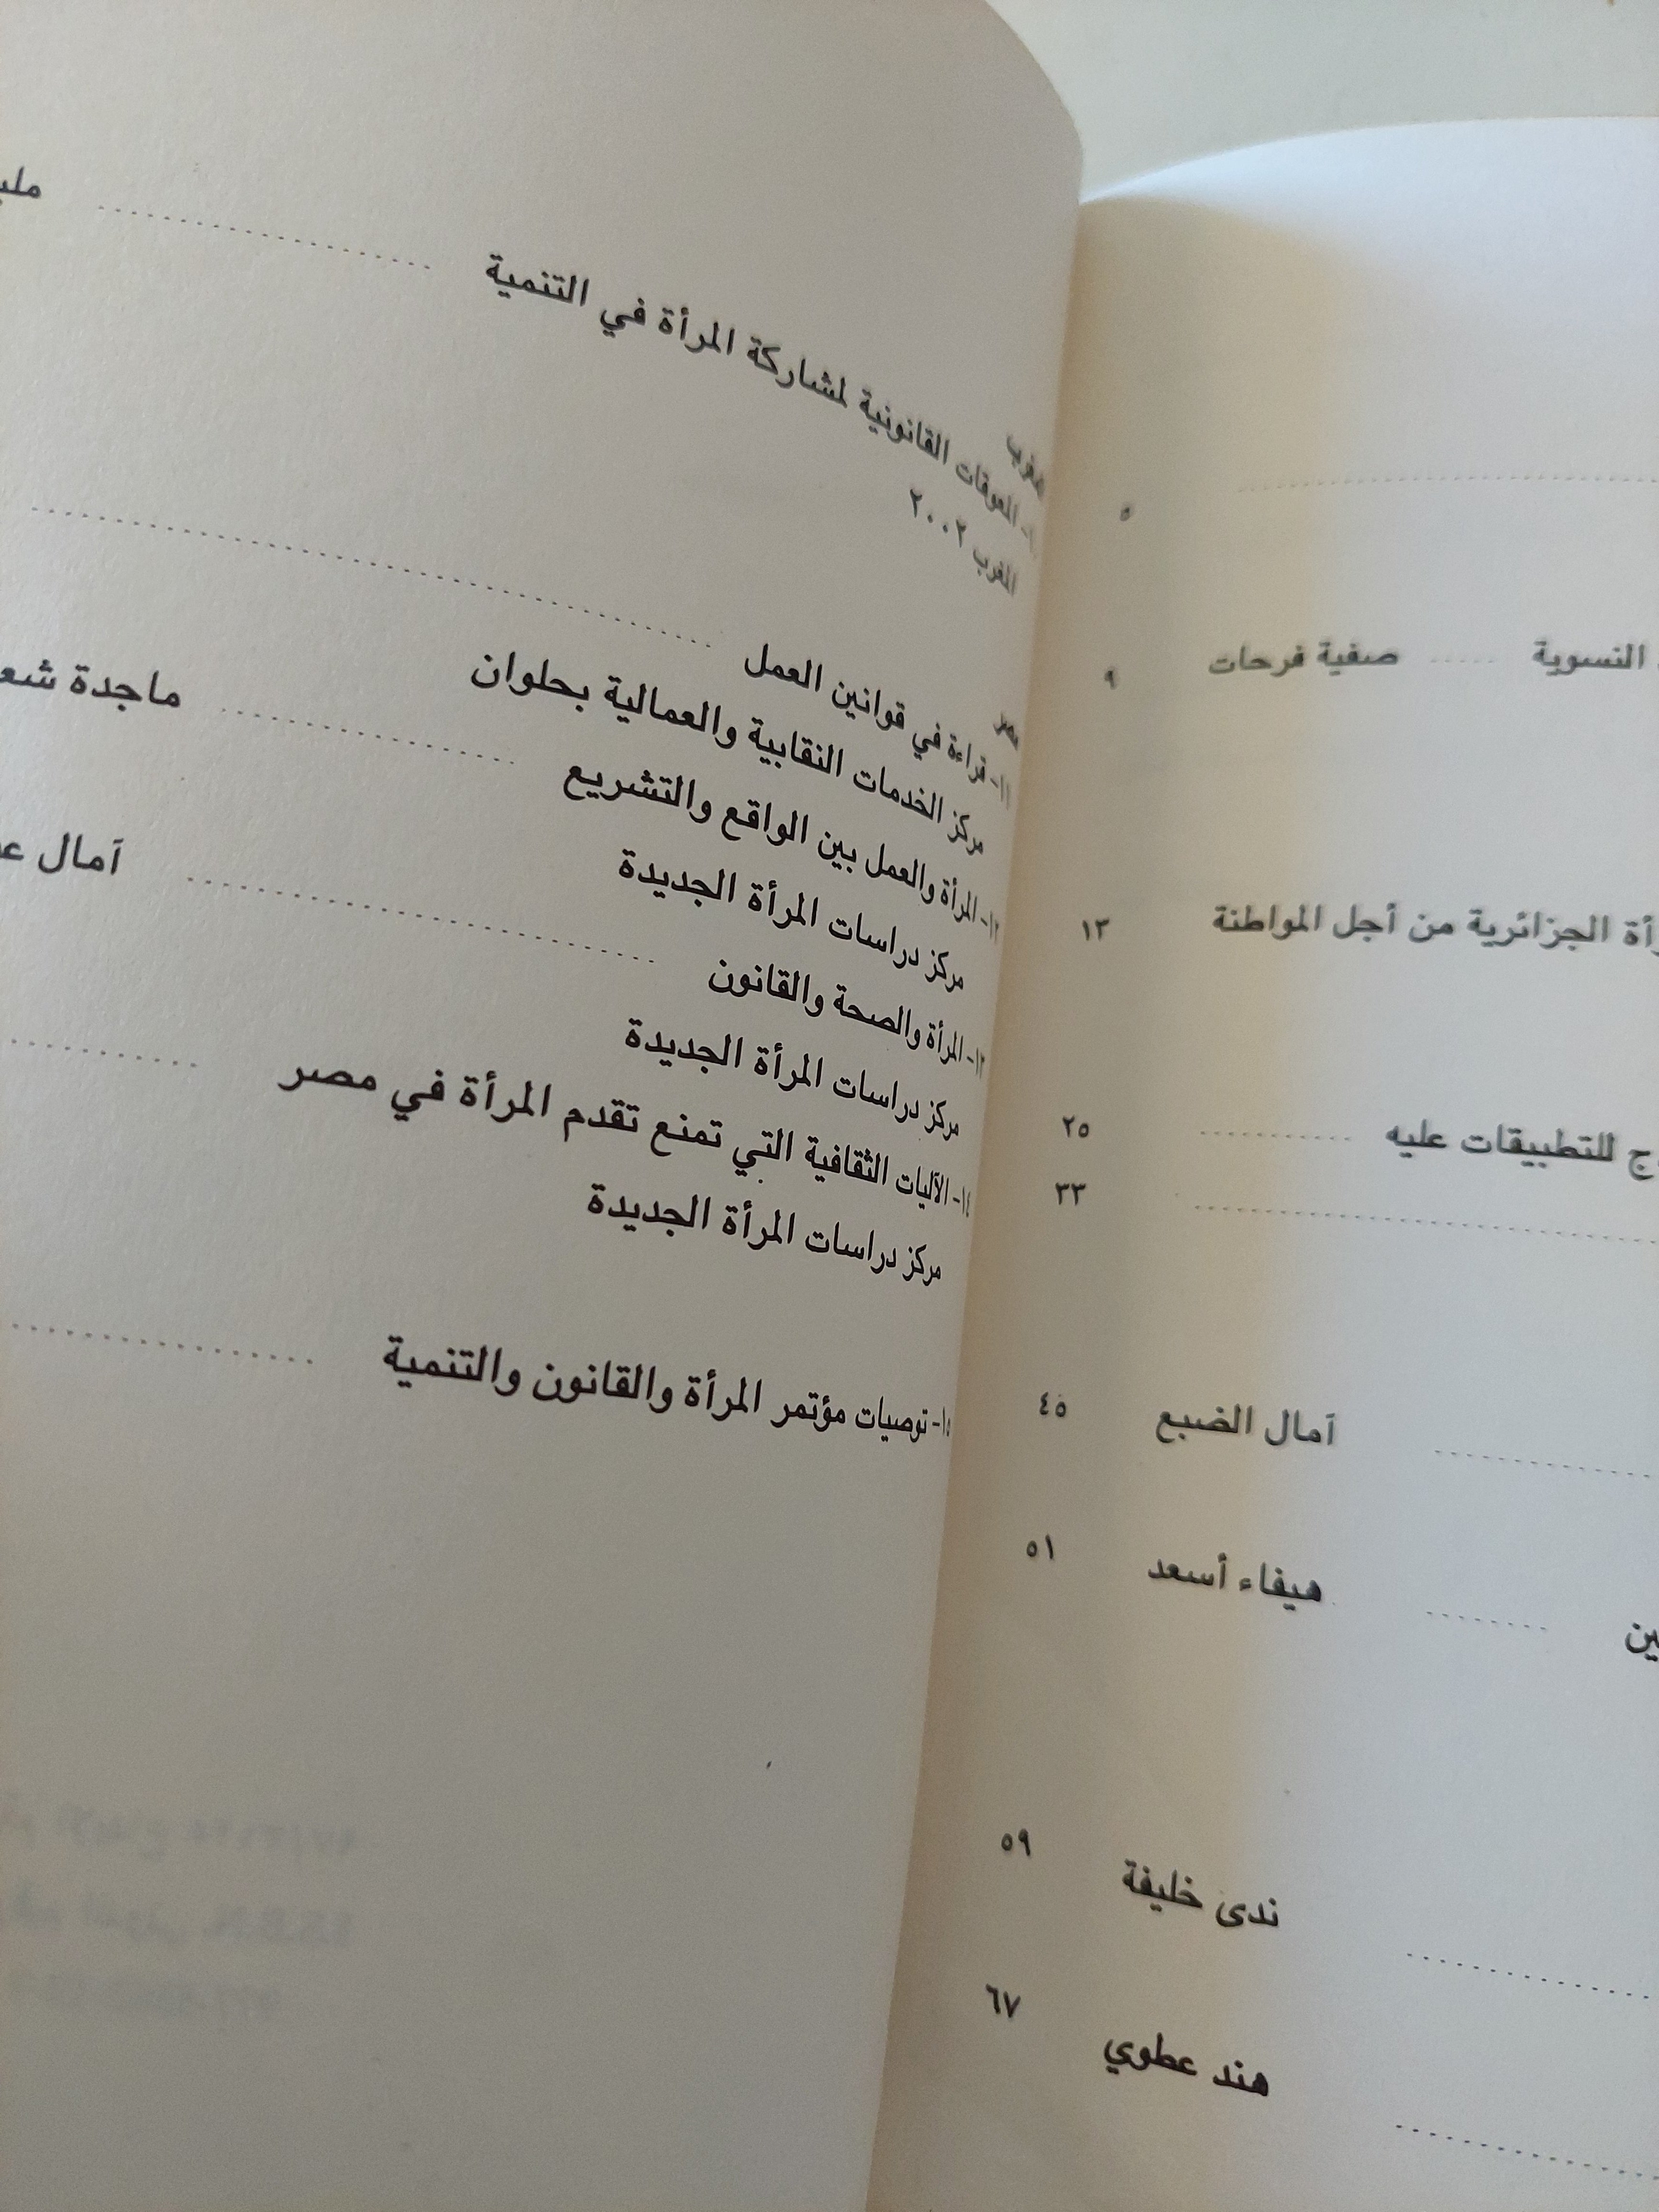 ٥
النسوية ..... صفية فرحات ٩
الجزائرية من أجل المواطنة ١٣
للتطبيقات عليه ٢٥
٣٣
آمال الضبع ٤٥
هيفاء أسعد ٥١
ندى خليفة ٥٩
هند عطوي ٦٧
المعوقات القانونية لمشاركة المرأة في التنمية
المغرب ٢٠٠٢
مصر
١١- قراءة في قوانين العمل
مركز الخدمات النقابية والعمالية بحلوان
١٢- المرأة والعمل بين الواقع والتشريع ..... ماجدة
مركز دراسات المرأة الجديدة
١٣- المرأة والصحة والقانون ..... آمال
مركز دراسات المرأة الجديدة
١٤- الآليات الثقافية التي تمنع تقدم المرأة في مصر
مركز دراسات المرأة الجديدة
١٥- توصيات مؤتمر المرأة والقانون والتنمية